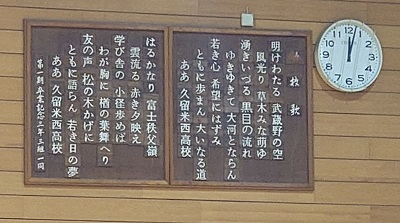 校歌
明けわたる 武蔵野の空
風光り 草木みな萌ゆ
湧きいづる 黒目の流れ
ゆきゆきて 大河とならん
若き心 希望にはずみ
ともに歩まん 大いなる道
ああ 久留米西高校
はるかなり 富士秩父嶺
雲流る 赤き夕映え
学び舎の 小径歩めば
わが胸に 楢の葉舞へり
友の声 松の木かげに
ともに語らん 若き日の夢
ああ 久留米西高校
第一期 卒業記念 三年三組一同
12
1
2
3
4
5
6
7
8
9
10
11